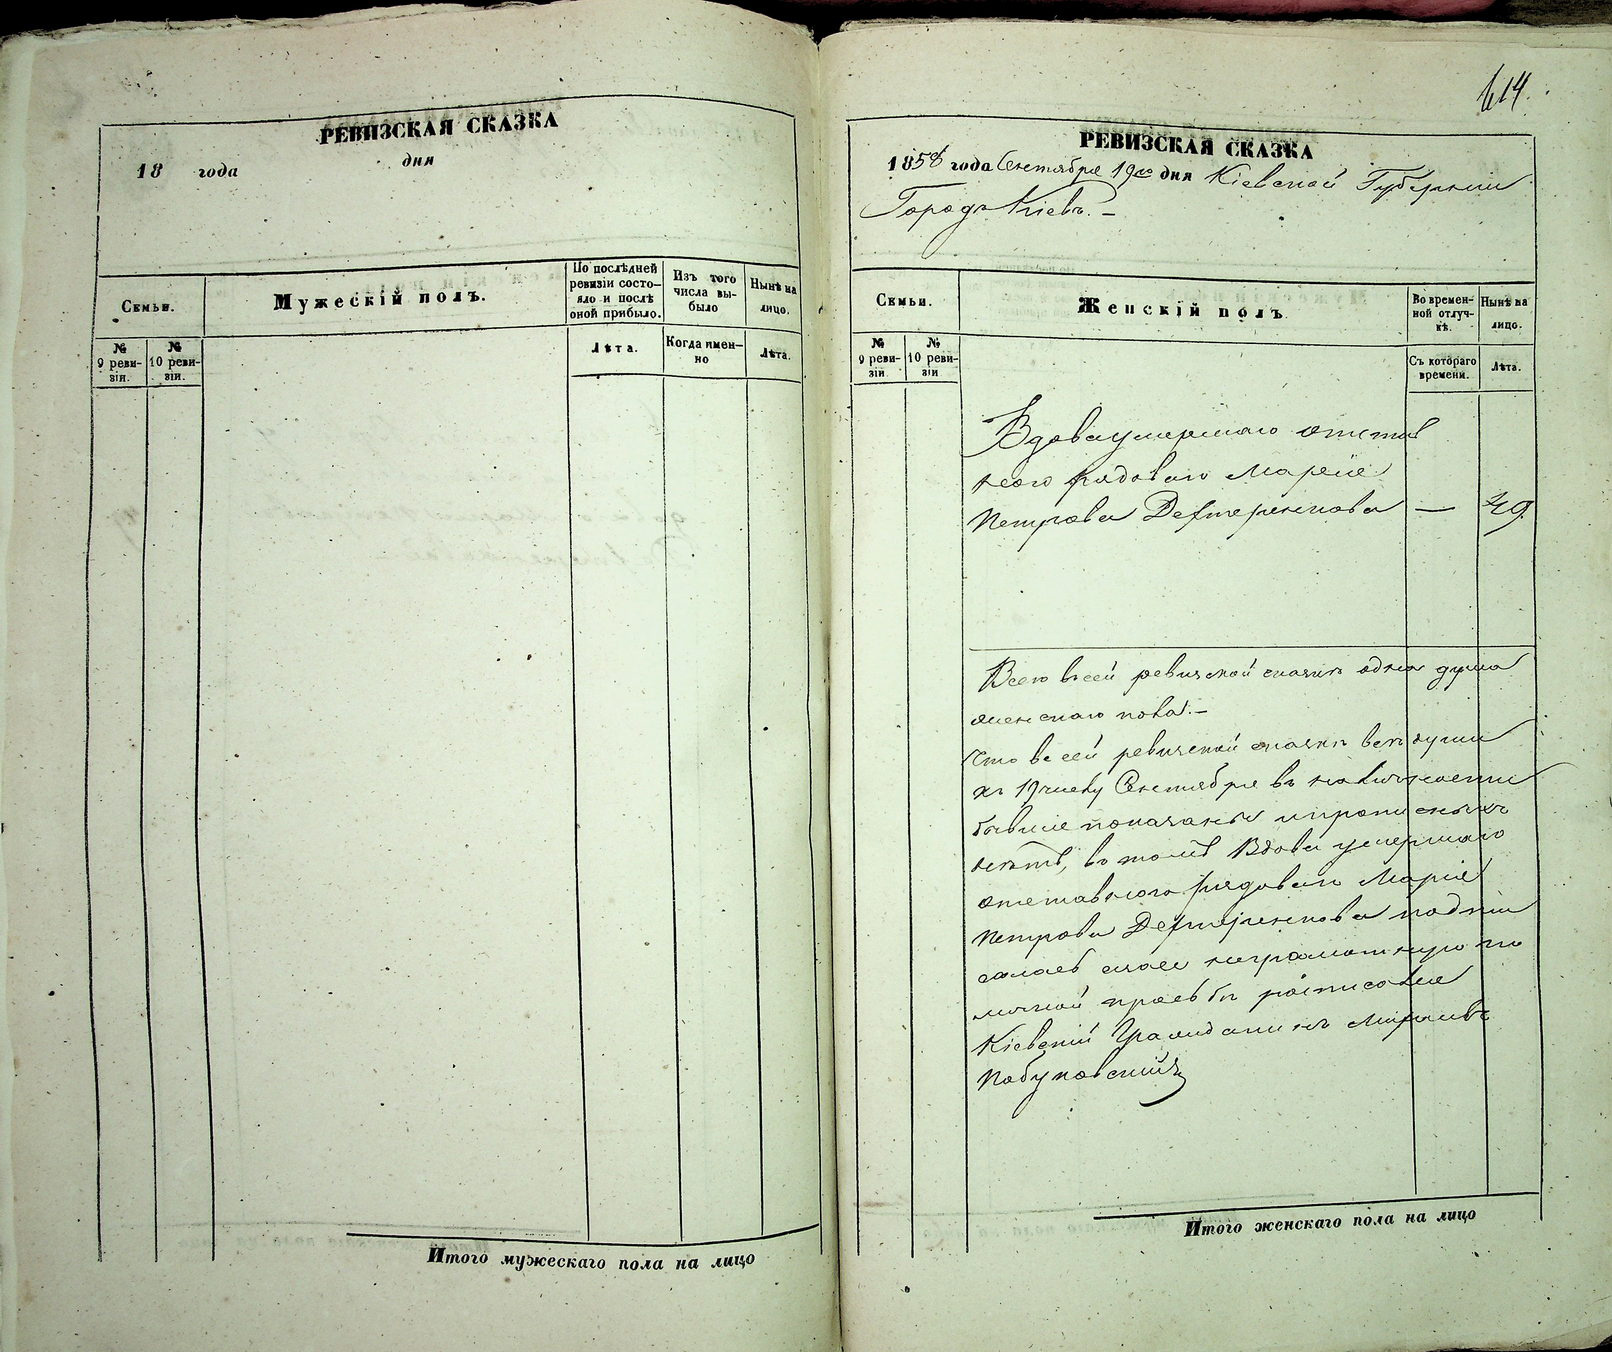 РЕВИЗСКАЯ СКАЗКА
18 года дня
Семьи.
Мужескій полъ.
По послѣдней ревизіи состояло и послѣ оной прибыло.
Изъ того числа выбыло
Нынѣ на лицо.
№ 9 ревизіи.
№ 10 ревизіи.
Лѣта.
Когда именно
Лѣта.
Итого мужескаго пола на лицо
614.
РЕВИЗСКАЯ СКАЗКА
1858 года Сентября 19го дня Кіевской Губерніи
Городъ Кіевъ. –
Семьи.
Женскій полъ
Во временной отлучкѣ.
Нынѣ на лицо.
№ 9 ревизіи
№ 10 ревизіи
Съ котораго времени.
Лѣта.
Вдова умершаго отстав
ного рядоваго Марія
Петрова Дефтеренкова — 49
Всего въ сей ревизской сказкѣ одна душа
женскаго пола. –
Что въ сей ревизской сказкѣ всѣ души
къ 19 числу Сентября въ наличности
бывшіе показаны и прописныхъ
нѣтъ, въ томъ Вдова умершаго
отставного рядоваго Марія
Петрова Дефтеренкова подпи
салась а за нее неграмотную по
личной просьбѣ росписался
Кіевскій Гражданинъ